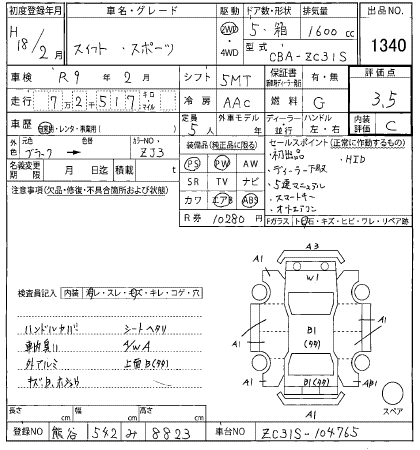 初度登録年月
H18/2月
車名・グレード
スイフト・スポーツ
駆動
2WD
・4WD
ドア数・形状
5・箱
排気量
1600cc
型式
CBA-ZC31S
出品NO.
1340
車検
R9年2月
シフト
5MT
保証書
有・無
評価点
3.5
走行
7万2千517
キロ
マイル
冷房
AAC
燃料
G
ハンドル
左・右
内装評価
C
車歴
自家用・レンタ・事業用
定員
5人
外車モデル
年
ディーラー
並行
外色
元色
色替
カラーNO.
ZJ3
名義変更期限
月 日迄
積載
t
装備品(純正品に限る)
PS PW AW
SR TV ナビ
カワ エアB ABS
R券
10280円
セールスポイント(正常に作動するもの)
・初出品
・HID
・ディーラー下取
・5速マニュアル
・スマートキー
・オートエアコン
Fガラス
トビ石・キズ・ヒビ・ワレ・リペア跡
注意事項(欠品・修復・不具合箇所および状態)
検査員記入
内装
ヨゴレ・スレ・キズ・キレ・コゲ・穴
シートヘタリ
4/WA
外アルミ
A3
A1
A1
W1
A1
B1
A1
A1
A1
A1
スペア
長さ
cm
幅
cm
高さ
cm
登録NO
熊谷 542 み 8823
車台NO
ZC31S-104765